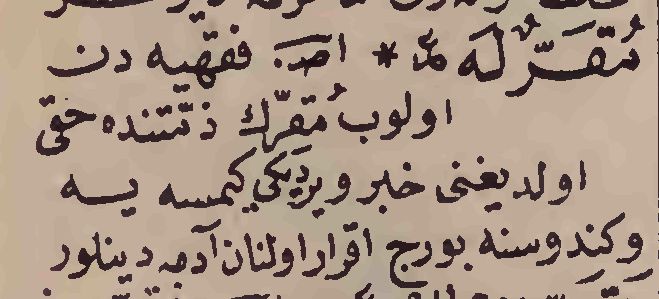 مُقَرٌّ لَهُ عر * اص. فقهیه دن
اولوب مُقرّك ذمّتنده حقی
اولدیغنی خبر ویردیکی کیمسه یه
وکندوسنه بورج اقرار اولنان آدمه دینلور